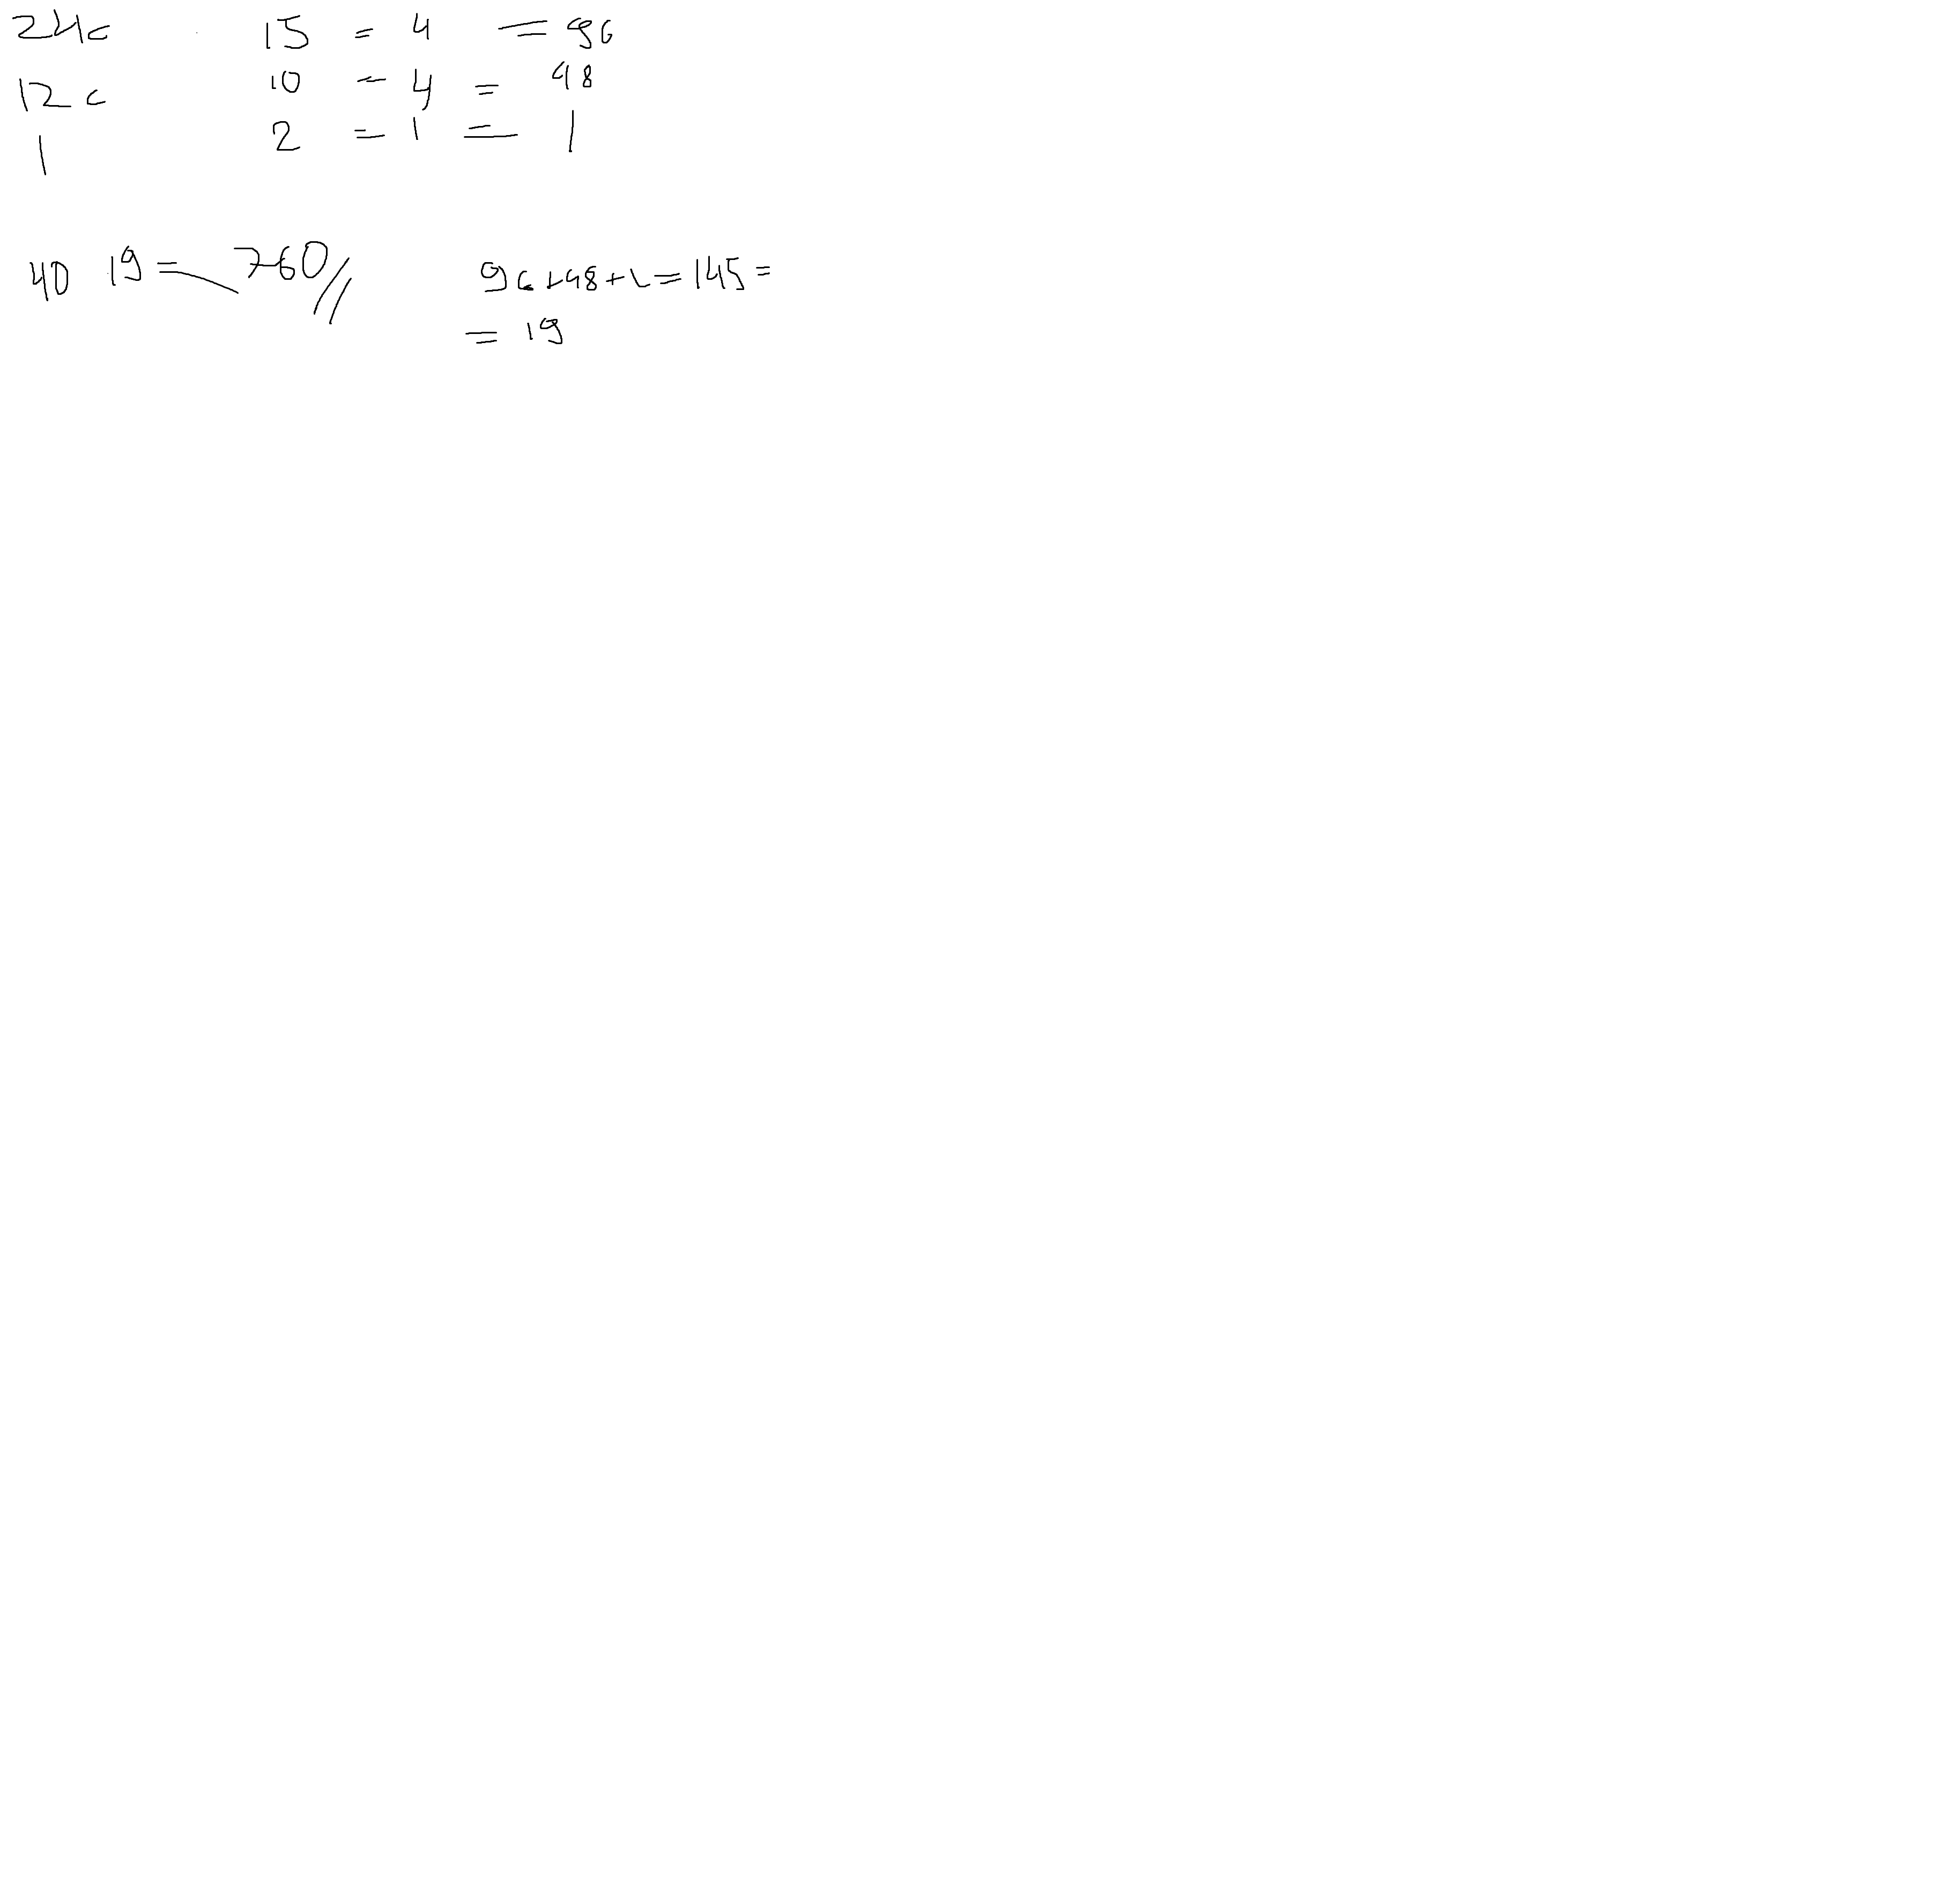 24c 15 = 4 = 96
12c 10 = 4 = 48
1 2 = 1 = 1
40 19 = 760 // 96+48+1=145=
= 19